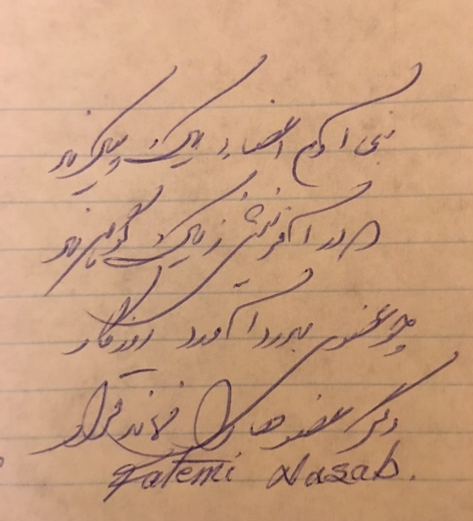 بنی آدم اعضاء یک پیکرند
که در آفرینش ز یک گوهرند
چو عضوی بدرد آورد روزگار
دگر عضوها را نماند قرار
Fatemi Nasab.